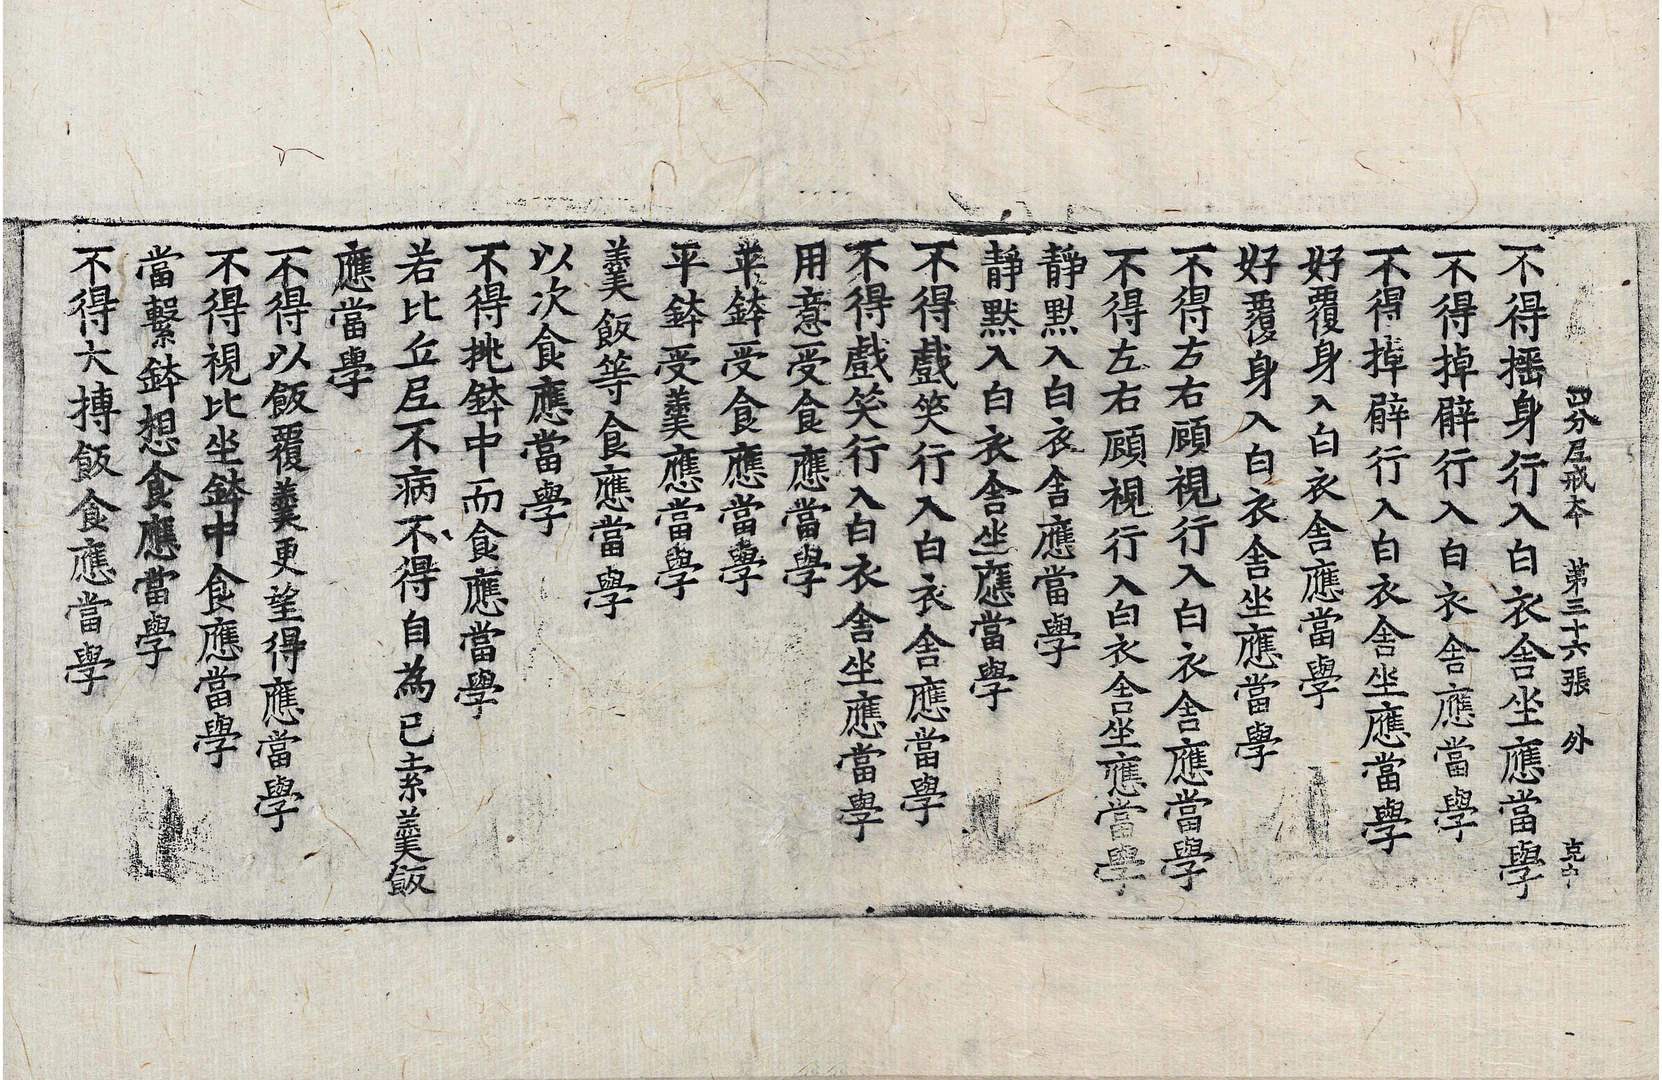 四分尼戒本　第三十六張　外　克
不得搖身行入白衣舍坐應當學
不得掉臂行入白衣舍應當學
不得掉臂行入白衣舍坐應當學
好覆身入白衣舍應當學
好覆身入白衣舍坐應當學
不得左右顧視行入白衣舍應當學
不得左右顧視行入白衣舍坐應當學
靜默入白衣舍應當學
靜默入白衣舍坐應當學
不得戲笑行入白衣舍應當學
不得戲笑行入白衣舍坐應當學
用意受食應當學
平鉢受食應當學
平鉢受羹應當學
羹飯等食應當學
以次食應當學
不得挑鉢中而食應當學
若比丘尼不病不得自為已索羹飯
應當學
不得以飯覆羹更望得應當學
不得視比坐鉢中食應當學
當繫鉢想食應當學
不得大搏飯食應當學